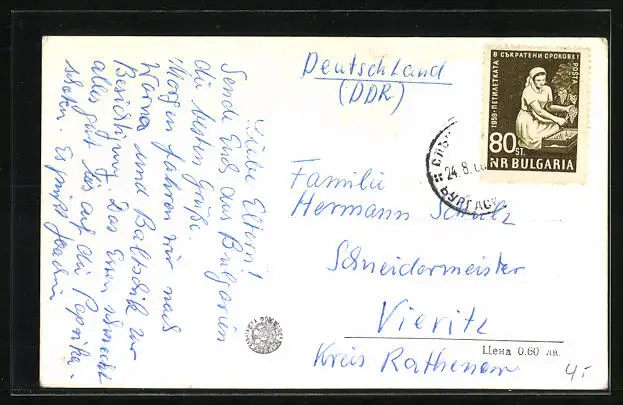 Liebe Eltern!
Sende Euch aus Bulgarien
die besten Grüße.
Morgen fahren wir nach
Warna und Baltschik zur
Besichtigung. Das Essen schmeckt
alles gut bis auf die Paprika-
Es grüßt Joachim
Deutschland
(DDR)
В СЪКРАТЕНИ СРОКОВЕ!
1959·ПЕТИЛЕТКАТА
POSTA
80 ST.
NR BULGARIA
24.8.
БУРГАС
Familie
Hermann Schulz
Schneidermeister
Vieritz
Kreis Rathenow
Цена 0.60 лв.
4,-